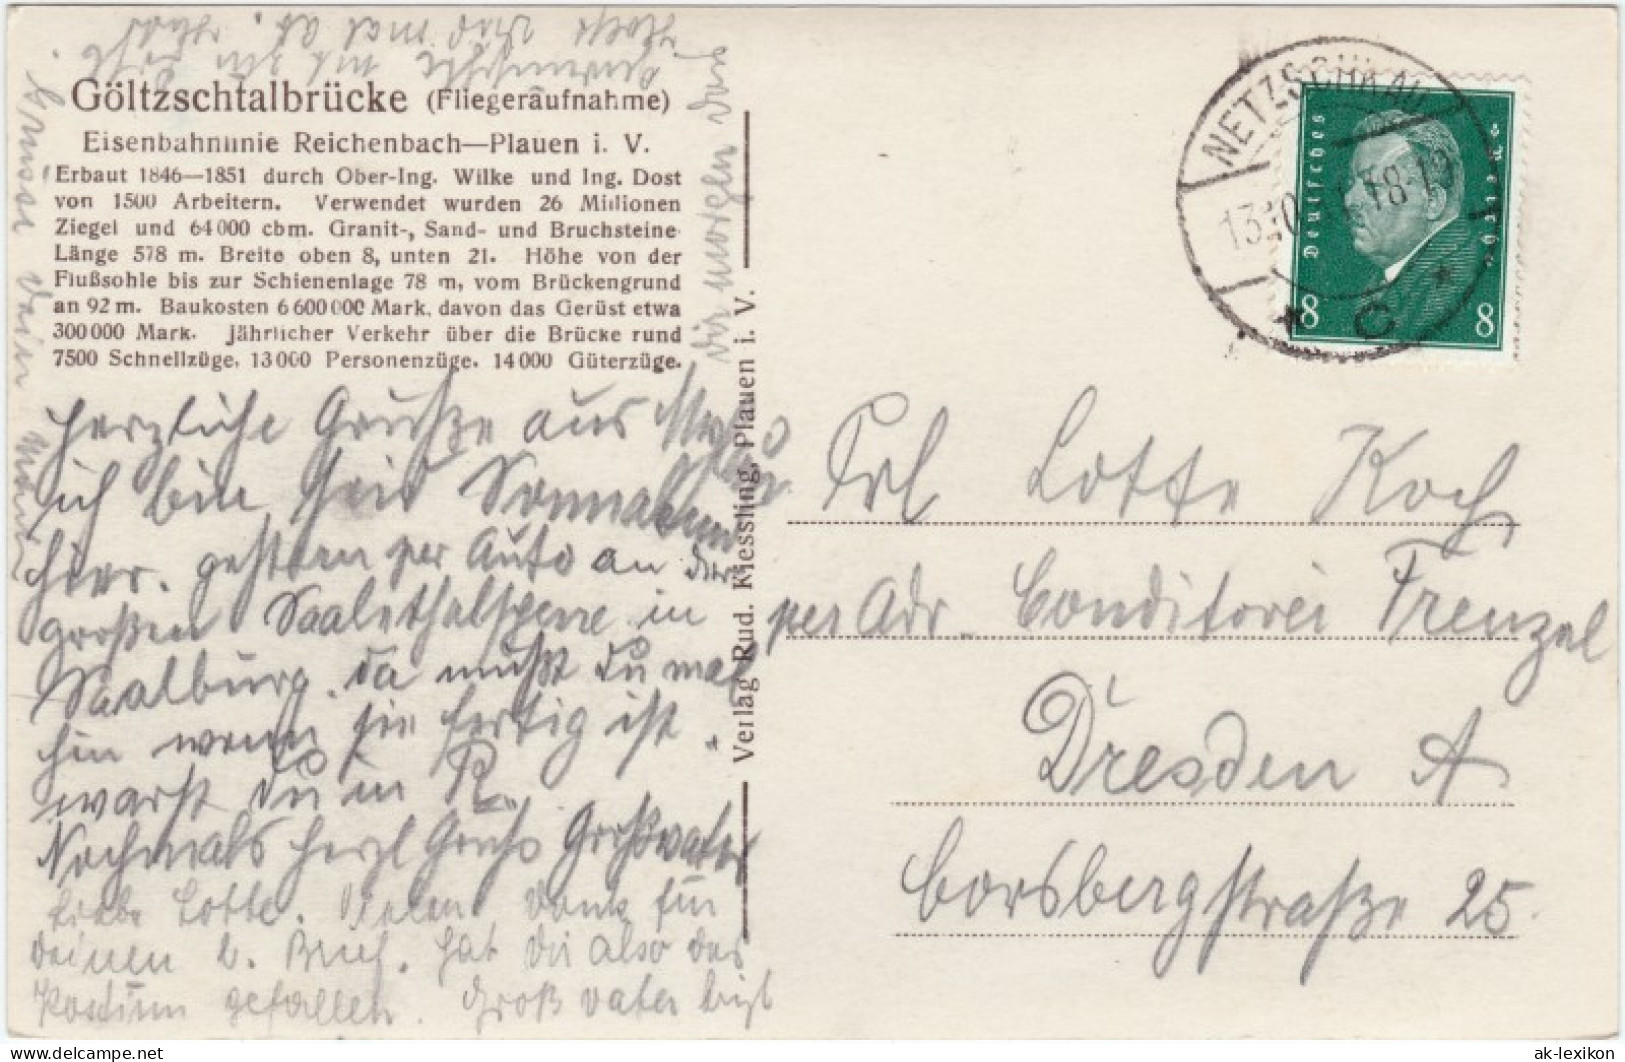 Göltzschtalbrücke (Fliegeraufnahme)
Eisenbahnlinie Reichenbach—Plauen i. V.
Erbaut 1846—1851 durch Ober-Ing. Wilke und Ing. Dost
von 1500 Arbeitern. Verwendet wurden 26 Millionen
Ziegel und 64000 cbm. Granit-, Sand- und Bruchsteine
Länge 578 m. Breite oben 8, unten 21. Höhe von der
Flußsohle bis zur Schienenlage 78 m, vom Brückengrund
an 92 m. Baukosten 6600000 Mark, davon das Gerüst etwa
300000 Mark. jährlicher Verkehr über die Brücke rund
7500 Schnellzüge, 13000 Personenzüge, 14000 Güterzüge.
herzliche Grüße aus
ich bin seid Sonnabend
hier. gestern per Auto an der
großen Saalethalsperre in
Saalburg. da mußt du mal
hin wenn sie fertig ist.
warst du in R.
Nochmals herzl Gruß Großvater
Liebe Lotte. Vielen Dank für
deinen l. Brief. hat dir also das
Kostüm gefallen. Großvater
dir morgen
Verlag Rud. Kiessling, Plauen i. V.
NETZSCHKAU
18-19
* C *
Deutsches
8 8
Frl Lotte Koch
per Adr. Conditorei Frenzel
Dresden A
Borsbergstraße 25.
ak-lexikon